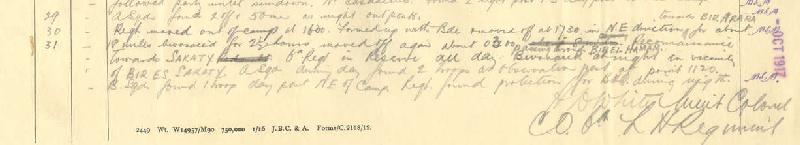 followed party until sundown. No casualties. Found 2 night
29 A Sqd found 2 Offs 50 men as night outposts.
30 Regt moved out of camp at 1600. Formed up with Bde & moved at 1730 in N.E direction for about towards BIR ARARA
31 18 miles bivouaced for 2½ hours moved off again about against BIR EL HAMAM Reconnaissance
towards SAKATY 6 Regt in Reserve all day. Bivouaced at night in vicinity
of BIR ES SAKATY. A Sqd during day found 2 troops as observation post at point 1120.
B Sqd found 1 troop day post N.E of Camp Regt. found protection for Bde. during night
H D White Lieut Colonel
C.O. 6th L H Regiment
OCT 1917
2449 Wt. W14957/M90 750,000 1/16 J.B.C. & A. Forms/C.2118/12.